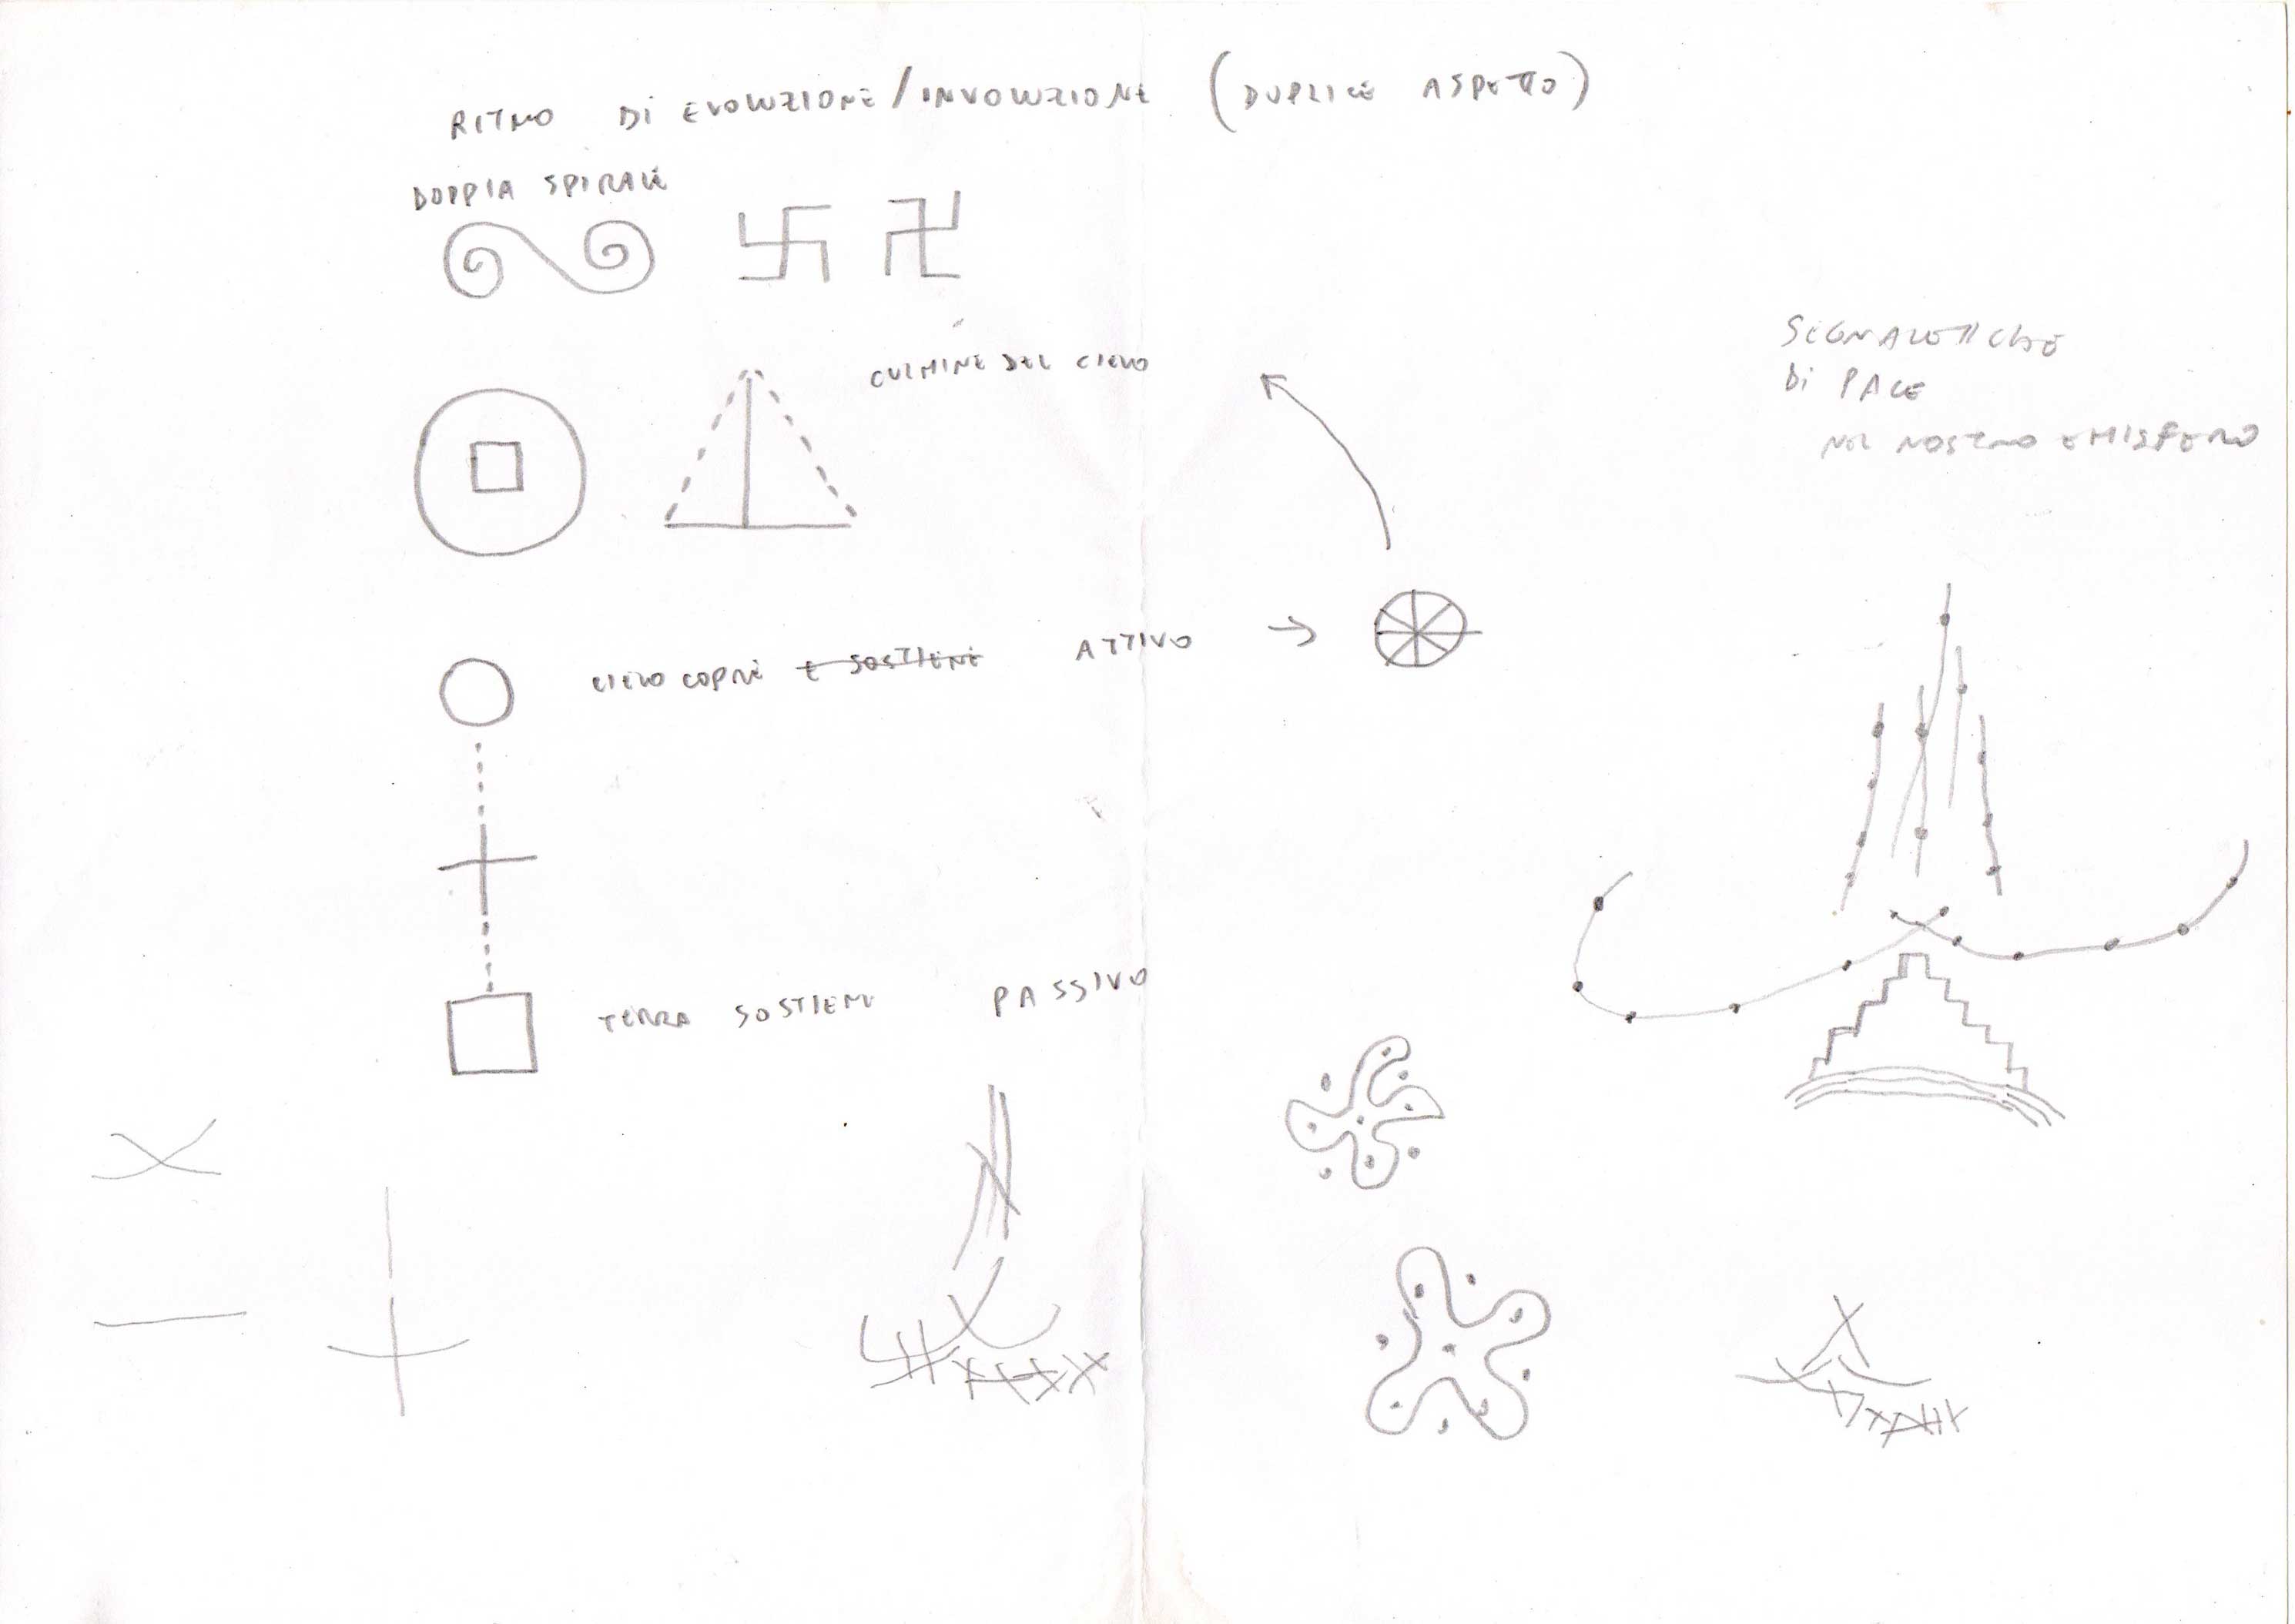 RITMO DI EVOLUZIONE/INVOLUZIONE (DUPLICE ASPETTO)
DOPPIA SPIRALE
CULMINE DEL CIELO
SEGNALETICHE
DI PACE
NEL NOSTRO EMISFERO
CIELO COPRE E SOSTIENE ATTIVO →
TERRA SOSTIENE PASSIVO